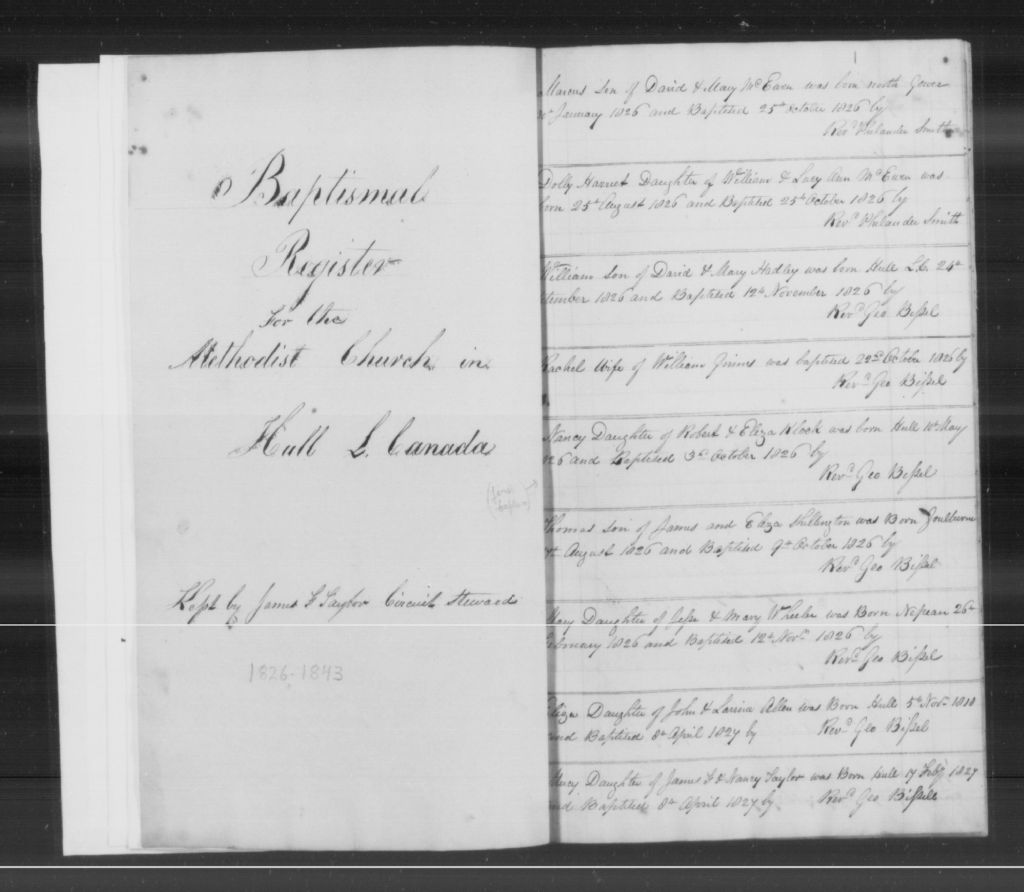 Baptismal
Register
For the
Methodist Church in
Hull L. Canada
Kept by James F Taylor Circuit Steward
1826-1843
1
Marcus Son of David & Mary McEwen was born North Gower
January 1826 and Baptised 25th October 1826 by
Revd Philander Smith
Dolly Harriet Daughter of Wm & Lucy Ann McEwen was
born 25th August 1826 and Baptised 25th October 1826 by
Revd Philander Smith
William Son of David & Mary Hadley was born Hull L.C. 24th
tember 1826 and Baptised 12th November 1826 by
Revd Geo Bißel
Rachel Wife of William was baptised 22nd October 1826 by
Revd Geo Bißel
Nancy Daughter of Robert & Eliza Klock was born Hull 10th May
26 and Baptised 3rd October 1826 by
Revd Geo Bißel
Thomas Son of James and Eliza Shillington was Born Goulburn
August 1826 and Baptised 9th October 1826 by
Revd Geo Bißel
Mary Daughter of & Mary Wheeler was Born Nepean 26th
February 1826 and Baptised 12th Novr 1826 by
Revd Geo Bißel
Eliza Daughter of John & Allen was Born Hull 5th Novr 1810
and Baptised 8th April 1827 by Revd Geo Bißel
Daughter of James F & Nancy Taylor was Born Hull 17 Feby 1827
and Baptised 8th April 1827 by Revd Geo Bißell